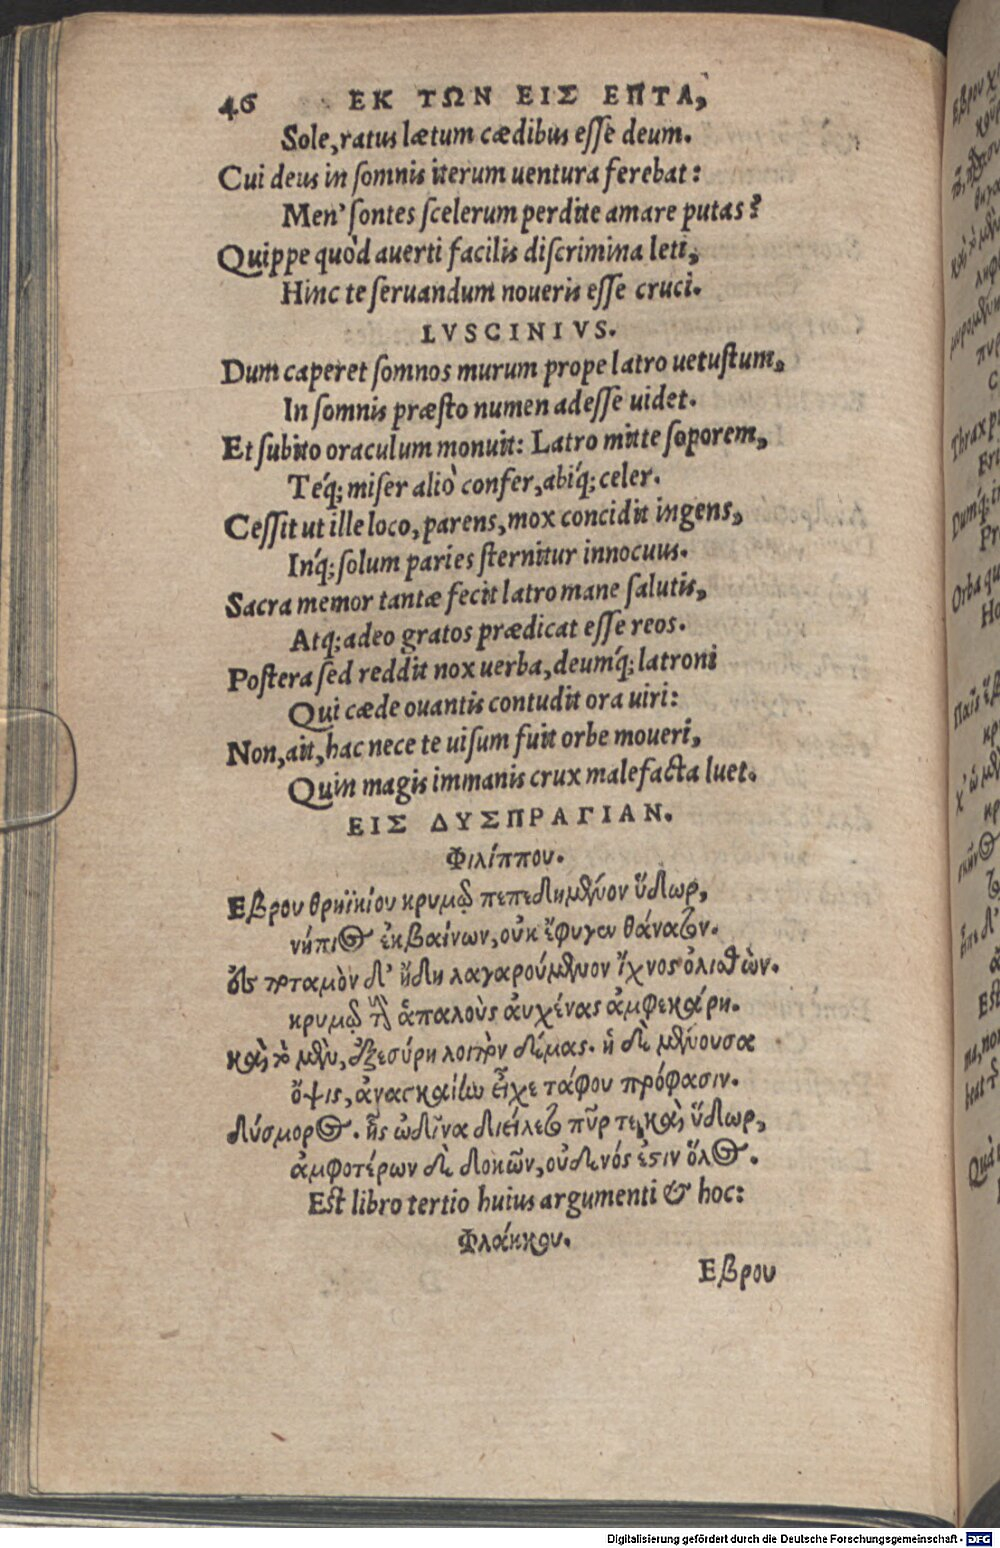 46 ΕΚ ΤΩΝ ΕΙΣ ΕΠΤΑ,
Sole, ratus lætum cædibus esse deum.
Cui deus in somnis iterum uentura ferebat:
Men' sontes scelerum perdite amare putas?
Quippe quòd auerti facilis discrimina leti,
Hinc te seruandum noueris esse cruci.
LVSCINIVS.
Dum caperet somnos murum prope latro uetustum,
In somnis præsto numen adesse uidet.
Et subito oraculum monuit: Latro mitte soporem,
Téq; miser aliò confer, abíq; celer.
Cessit ut ille loco, parens, mox concidit ingens,
Inq́; solum paries sternitur innocuus.
Sacra memor tantæ fecit latro mane salutis,
Atq; adeo gratos prædicat esse reos.
Postera sed reddit nox uerba, deumq́; latroni
Qui cæde ouantis contudit ora uiri:
Non, ait, hac nece te uisum fuit orbe moueri,
Quin magis immanis crux malefacta luet.
ΕΙΣ ΔΥΣΠΡΑΓΙΑΝ.
Φιλίππου.
Εβρου θρηϊκίου κρυμῷ πεπεδημένον ὕδωρ,
νήπιος ἐκβαίνων, οὐκ ἔφυγεν θάνατον.
ἐς ποταμὸν δ' ἤδη λαγαρούμενον ἴχνος ὀλισθὼν.
κρυμῷ τοὺς ἁπαλοὺς αὐχένας ἀμφεκάρη.
καὶ τὸ μὲν, ἐξεσύρη λοιπὸν δέμας. ἡ δὲ μένουσα
ὄψις, ἀναγκαίην εἶχε τάφου πρόφασιν.
δύσμορος. ἧς ὠδῖνα διείλετο πῦρ τε καὶ ὕδωρ,
ἀμφοτέρων δὲ δοκῶν, οὐδενός ἐστιν ὅλος.
Est libro tertio huius argumenti & hoc:
Φλάκκου.
Εβρου
Digitalisierung gefördert durch die Deutsche Forschungsgemeinschaft - DFG